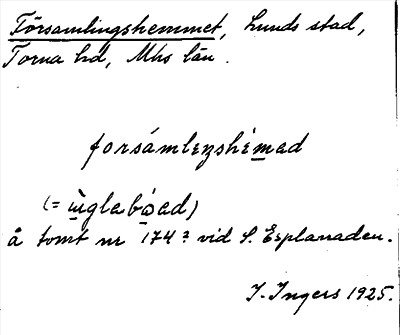 Församlingshemmet, Lunds stad,
Torna hd, Mhs län.
forsámleŋshémad
(= ùglabóad)
å tomt nr 174? vid S. Esplanaden.
I. Ingers 1925.